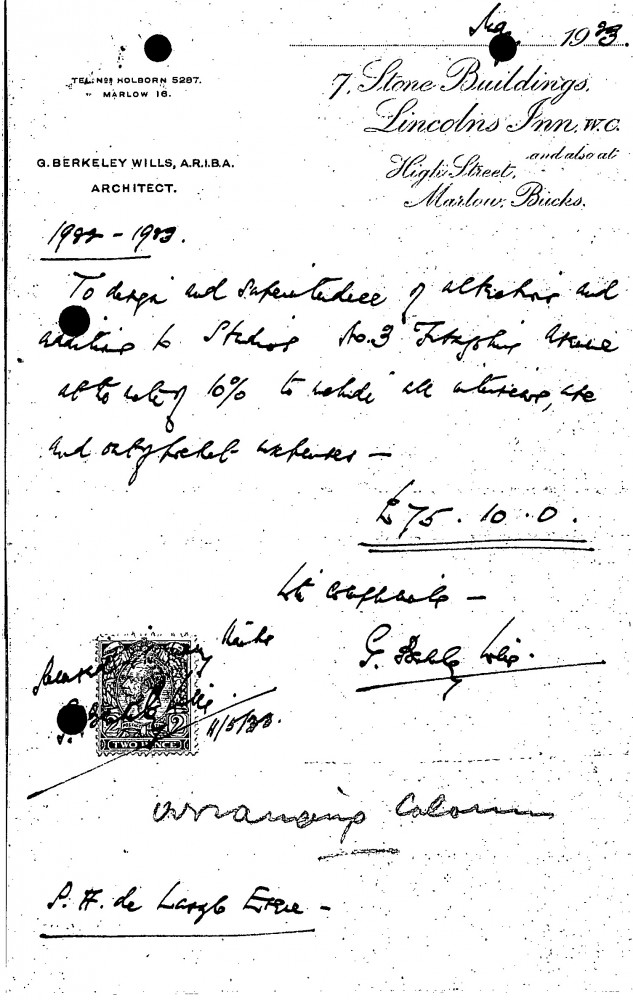 May 1933.
TEL: NOS HOLBORN 5297.
" MARLOW 16.
7, Stone Buildings,
Lincolns Inn, W.C.
and also at
High Street,
Marlow, Bucks.
G. BERKELEY WILLS, A.R.I.B.A.
ARCHITECT.
To design and superintendence of alterations and
additions to Studios No. 3 Fitzgerald Avenue
at the rate of 10% to include all interviews,
and out of pocket expenses —
£75.10.0.
With compliments —
G. Berkeley Wills.
Received thanks
G. Berkeley Wills
11/5/33.
TWO PENCE
2
arranging
P. A. de Laszlo Esqre —